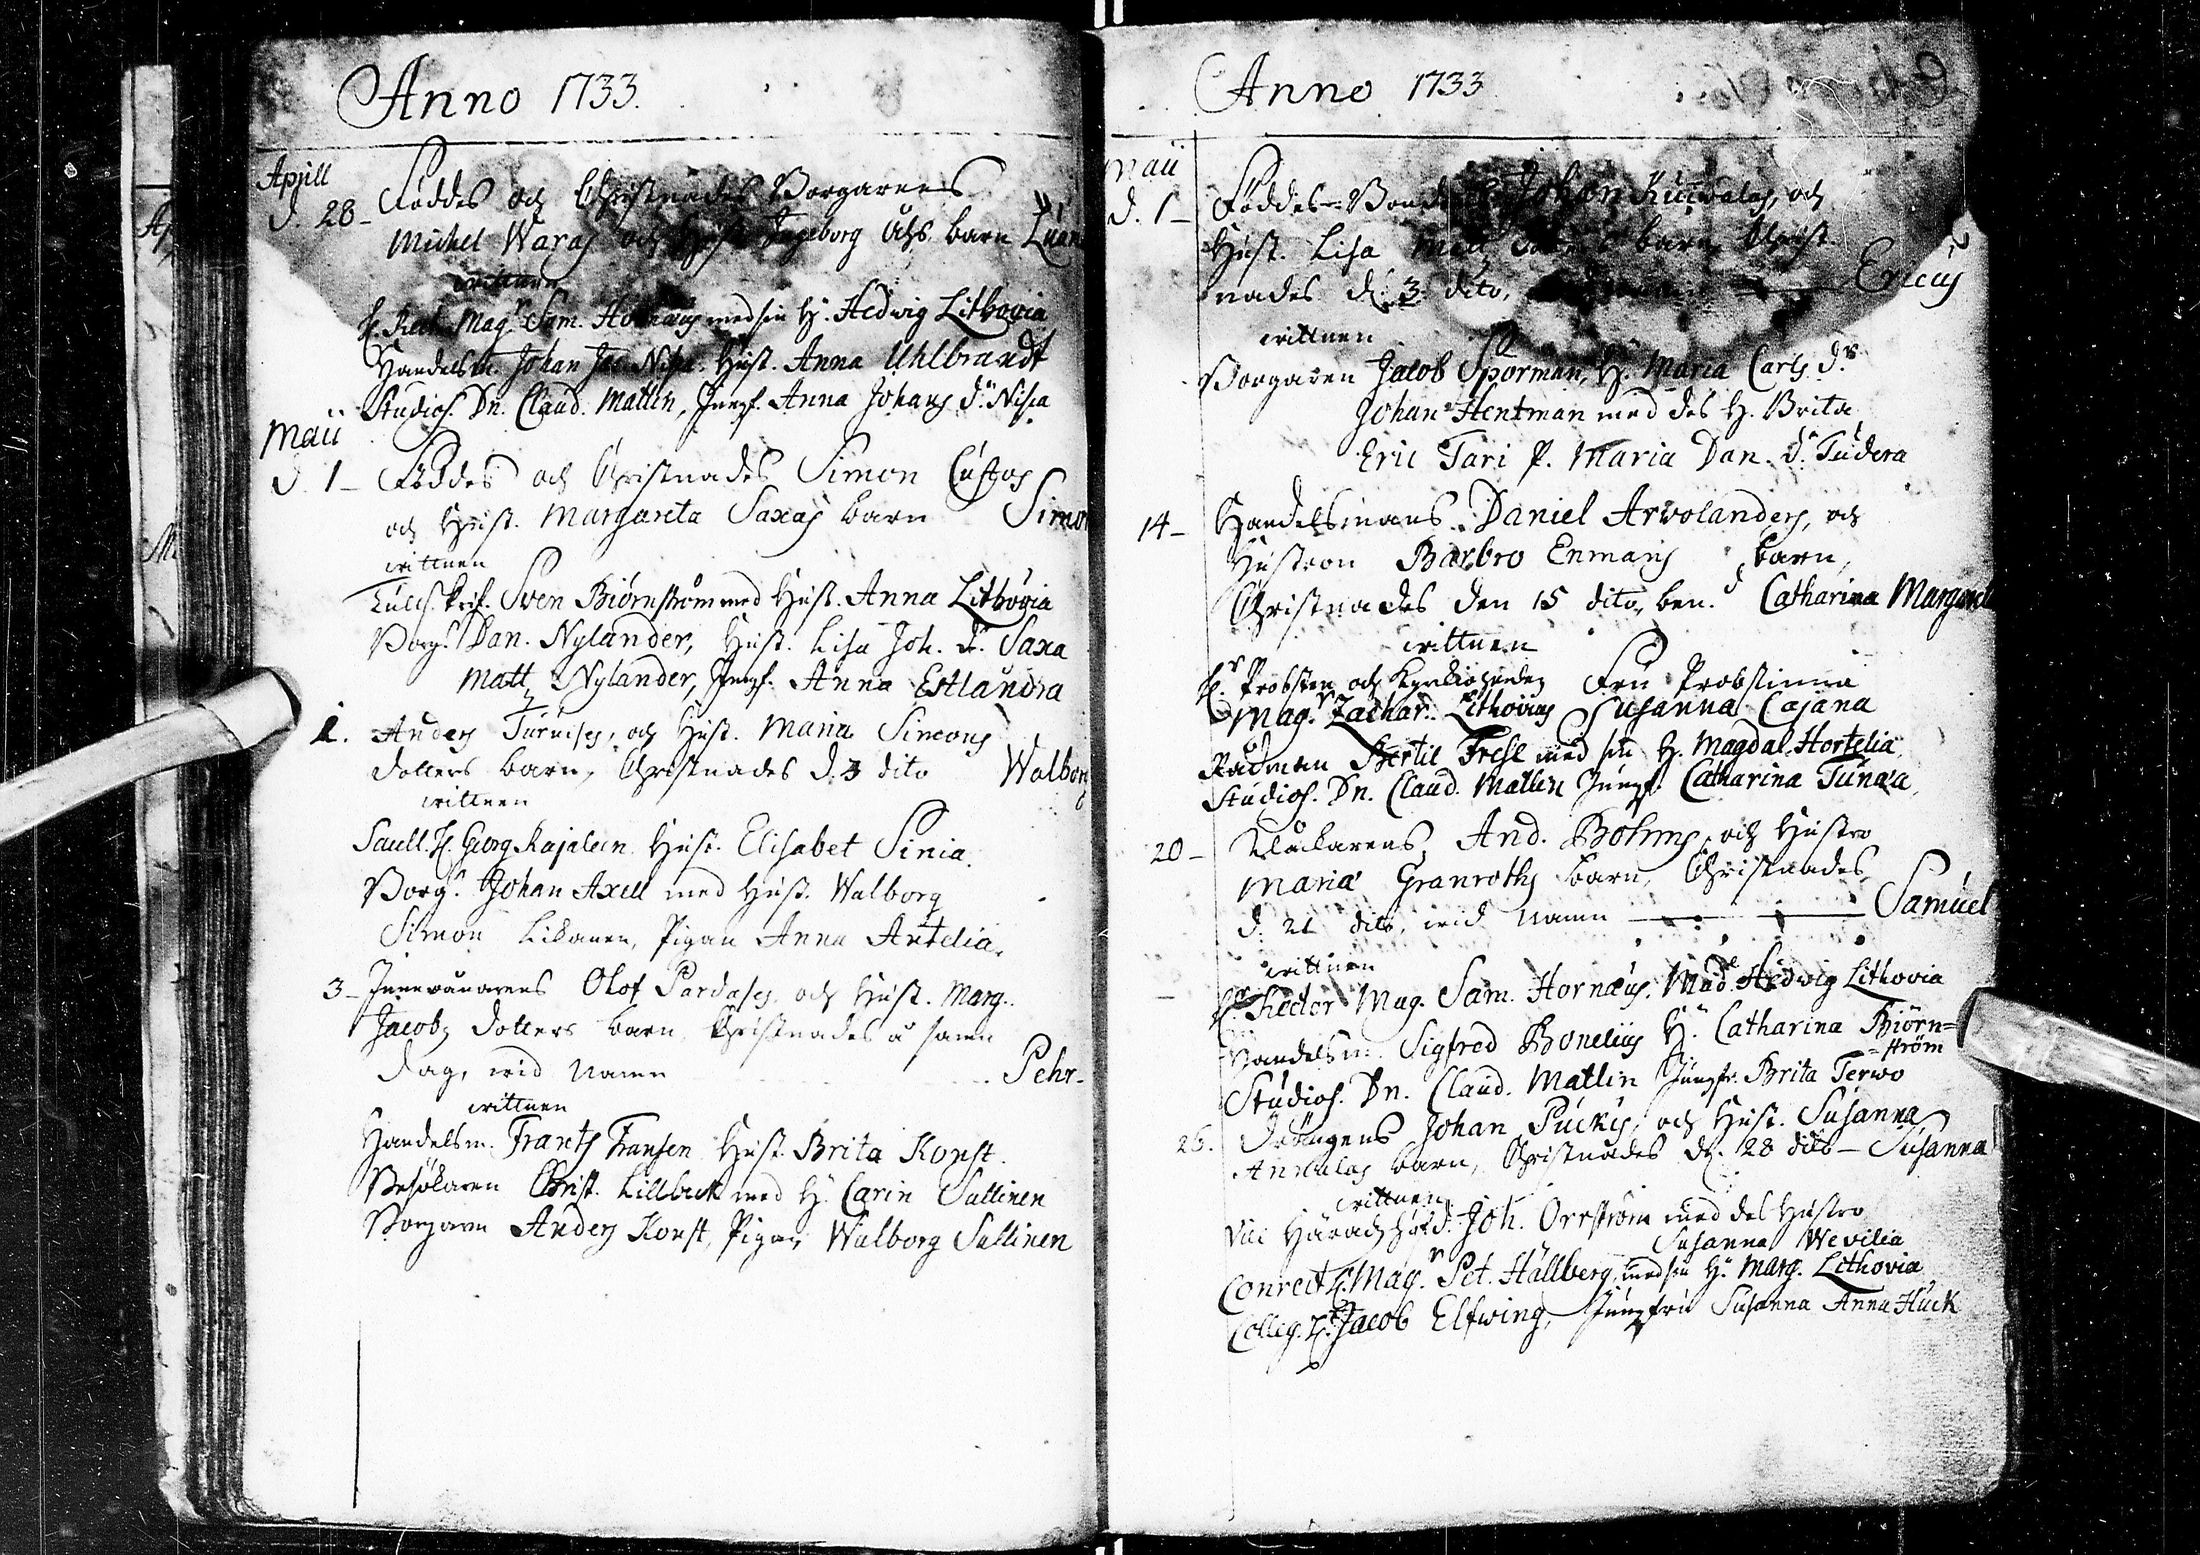 Anno 1733.
Aprill
d. 28 - Föddes och Christnades Borgarens
Michel Waras och Hust. Ingeborg barn
wittnen
H. Rect. Mag.r Sam. Hornæus med sin H. Hedvig Lithovia
Handelsm. Johan Hust. Anna Uhlbrandt
Studios. Dn. Claud. Matlin, Jungf. Anna Johans dr. Nisia
Maii
d. 1 - Föddes och Christnades Simon Custos
och Hust. Margareta Saxas barn Simon
wittnen
Sven Biörnström med Hust. Anna Lithovia
Borg. Dan. Nylander, Hust. Lisa Joh. dr. Saxa
Matt Nylander, Jungf. Anna Estlandra
1. Anders och Hust. Maria Simons
dotters barn, Christnades d. 3 dito Walborg
wittnen
H. Georg Kajaleen Hust. Elisabet Sinia.
Borg. Johan Axell med Hust. Walborg
Simon Pigan Anna Antelia.
3 - Olof och Hust. Marg.
Jacobs dotters barn Christnades å samma
dag, wid namn Pehr.
wittnen
Handelsm. Frants Fransen Hust. Brita Konst.
Christ. Lillbeck med H. Carin Sallinen
Borgaren Anders Konst, Pigan Walborg Sallinen
Anno 1733
Maii
d. 1 - Föddes Johan och
Hust. Lisa barn Christ-
nades d. 3 dito, Ericus
wittnen
Borgaren Jacob Sporman, H. Maria Carls dr.
Johan Hentman med des H. Brita
Eric Tari P. Maria Dan. dr. Tudera
14 - Handelsmans Daniel Arvolanders, och
Hustron Barbro Enmans barn,
Christnades den 15 dito, ben. Catharina Margaret
wittnen
H. Probsten och Kyrkioherden Fru Probstinna
Mag.r Zachar. Lithovius Susanna Cajana
Rådman Bertil Frese med sin H. Magdal. Hortelia
Studios. Dn. Claud. Matlin Jungf. Catharina Tunæa,
20 - Klockarens And. Bohms, och Hustro
Maria Granroths barn, Christnades
d. 21 dito, wid namn Samuel
wittnen
H. Rector Mag. Sam. Hornæus, Mad. Hedwig Lithovia
Handelsm. Sigfred Bonelius H. Catharina Biörn=
=ström
Studios. Dn. Claud. Matlin Jungfr. Brita Terwo
26. Drängens Johan Puckus, och Hust. Susanna
barn, Christnades d. 28 dito - Susanna
wittnen
Joh. Orrström med des Hustro
Susanna Wevilia
Conrect. H. Mag.r Pet. Hällberg, med sin H. Marg. Lithovia
Colleg. H. Jacob Elfwing, Jungfru Susanna Anna Huck